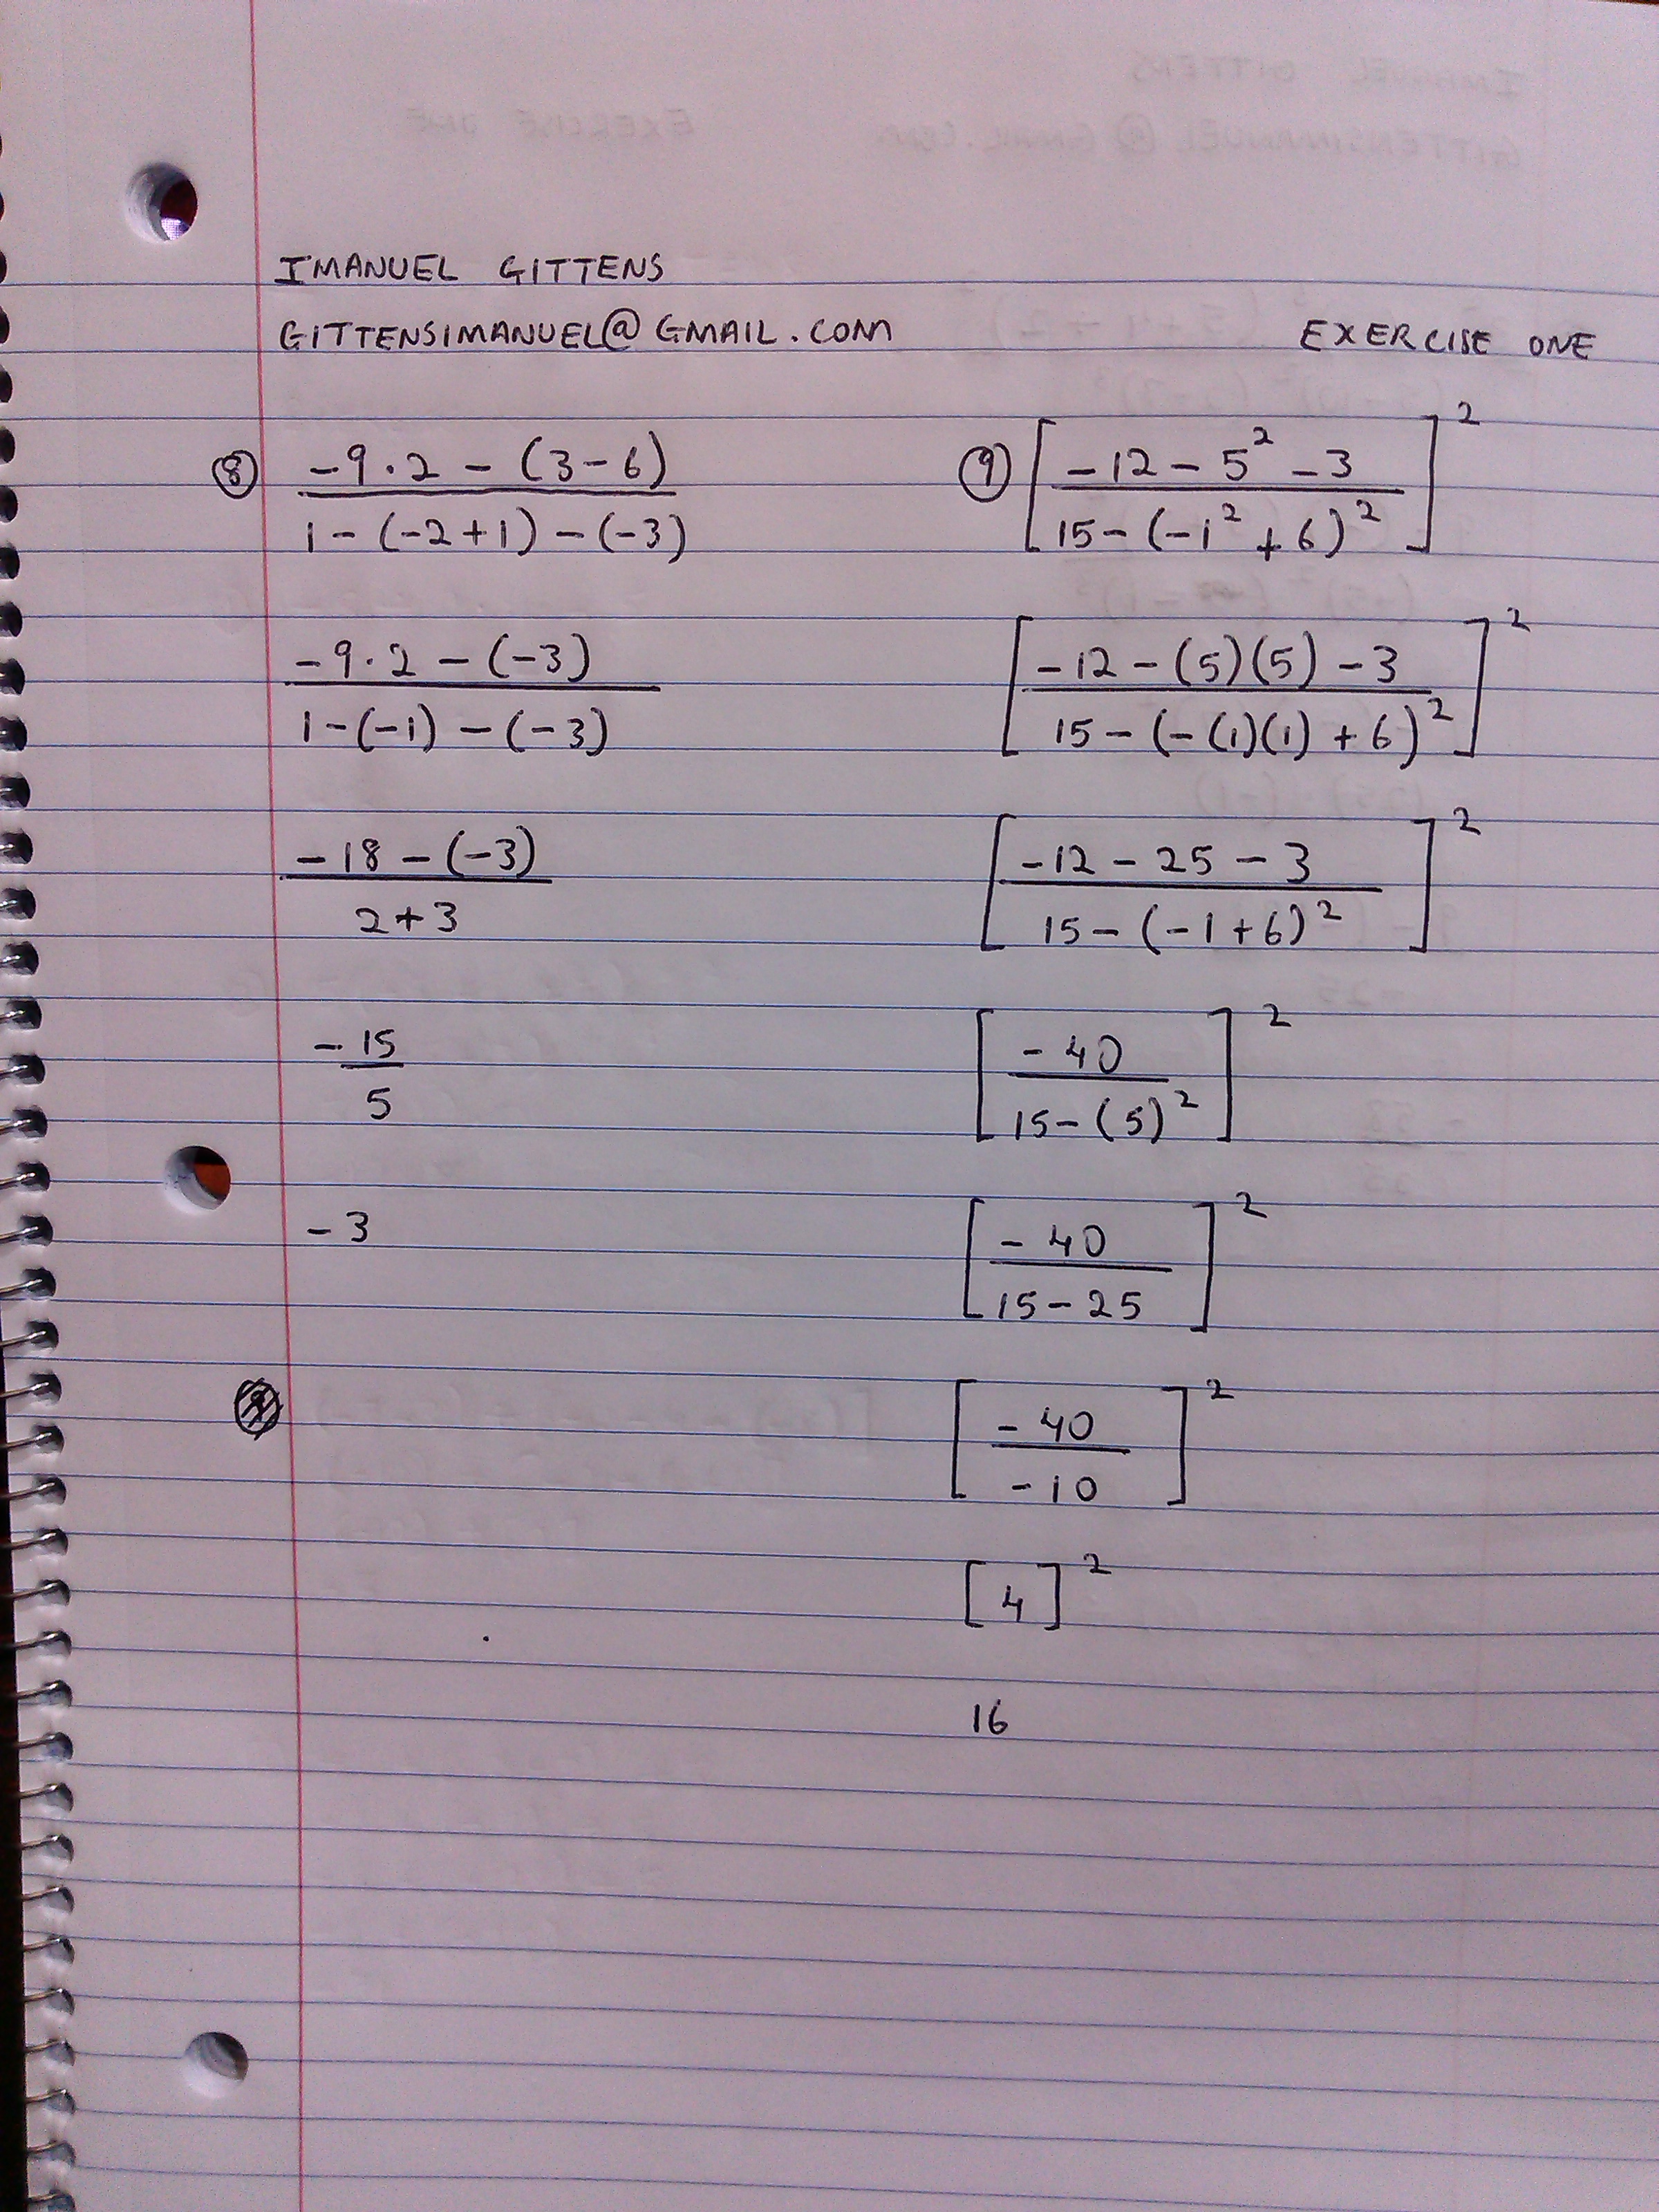 IMANUEL GITTENS
GITTENSIMANUEL@GMAIL.COM EXERCISE ONE
8
-9·2-(3-6)
1-(-2+1)-(-3)
-9·2-(-3)
1-(-1)-(-3)
-18-(-3)
2+3
-15
5
-3
9
[-12-5²-3]²
15-(-1²+6)²
[-12-(5)(5)-3]²
15-(-(1)(1)+6)²
[-12-25-3]²
15-(-1+6)²
[-40]²
15-(5)²
[-40]²
15-25
[-40]²
-10
[4]²
16